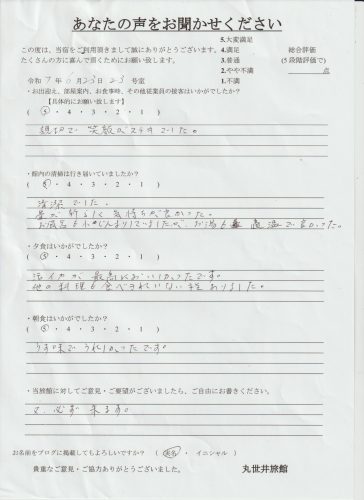 あなたの声をお聞かせください
この度は、当宿をご利用頂きまして誠にありがとうございます。
たくさんの方に喜んで頂くためにお願い致します。
5.大変満足
4.満足
3.普通
2.やや不満
1.不満
総合評価
(5段階評価で)
点
令和7年 月23日23号室
・お出迎え、部屋案内、お食事時、その他従業員の接客はいかがでしたか?
【具体的にお願い致します】
( 5・4・3・2・1 )
親切で 笑顔がステキでした。
・館内の清掃は行き届いていましたか?
( 5・4・3・2・1 )
清潔でした。
畳が新しく気持ちが良かった。
お風呂も お湯も 適温で良かった。
・夕食はいかがでしたか?
( 5・4・3・2・1 )
活イカが 最高においしかったです。
他の料理も食べきれいない程ありました。
・朝食はいかがでしたか?
( 5・4・3・2・1 )
うす味でうれしかったです。
・当旅館に対してご意見・ご要望がございましたら、ご自由にお書きください。
又、必ず 来ます。
お名前をブログに掲載してもよろしいですか? ( 実名 ・ イニシャル )
貴重なご意見・ご協力ありがとうございました。
丸世井旅館